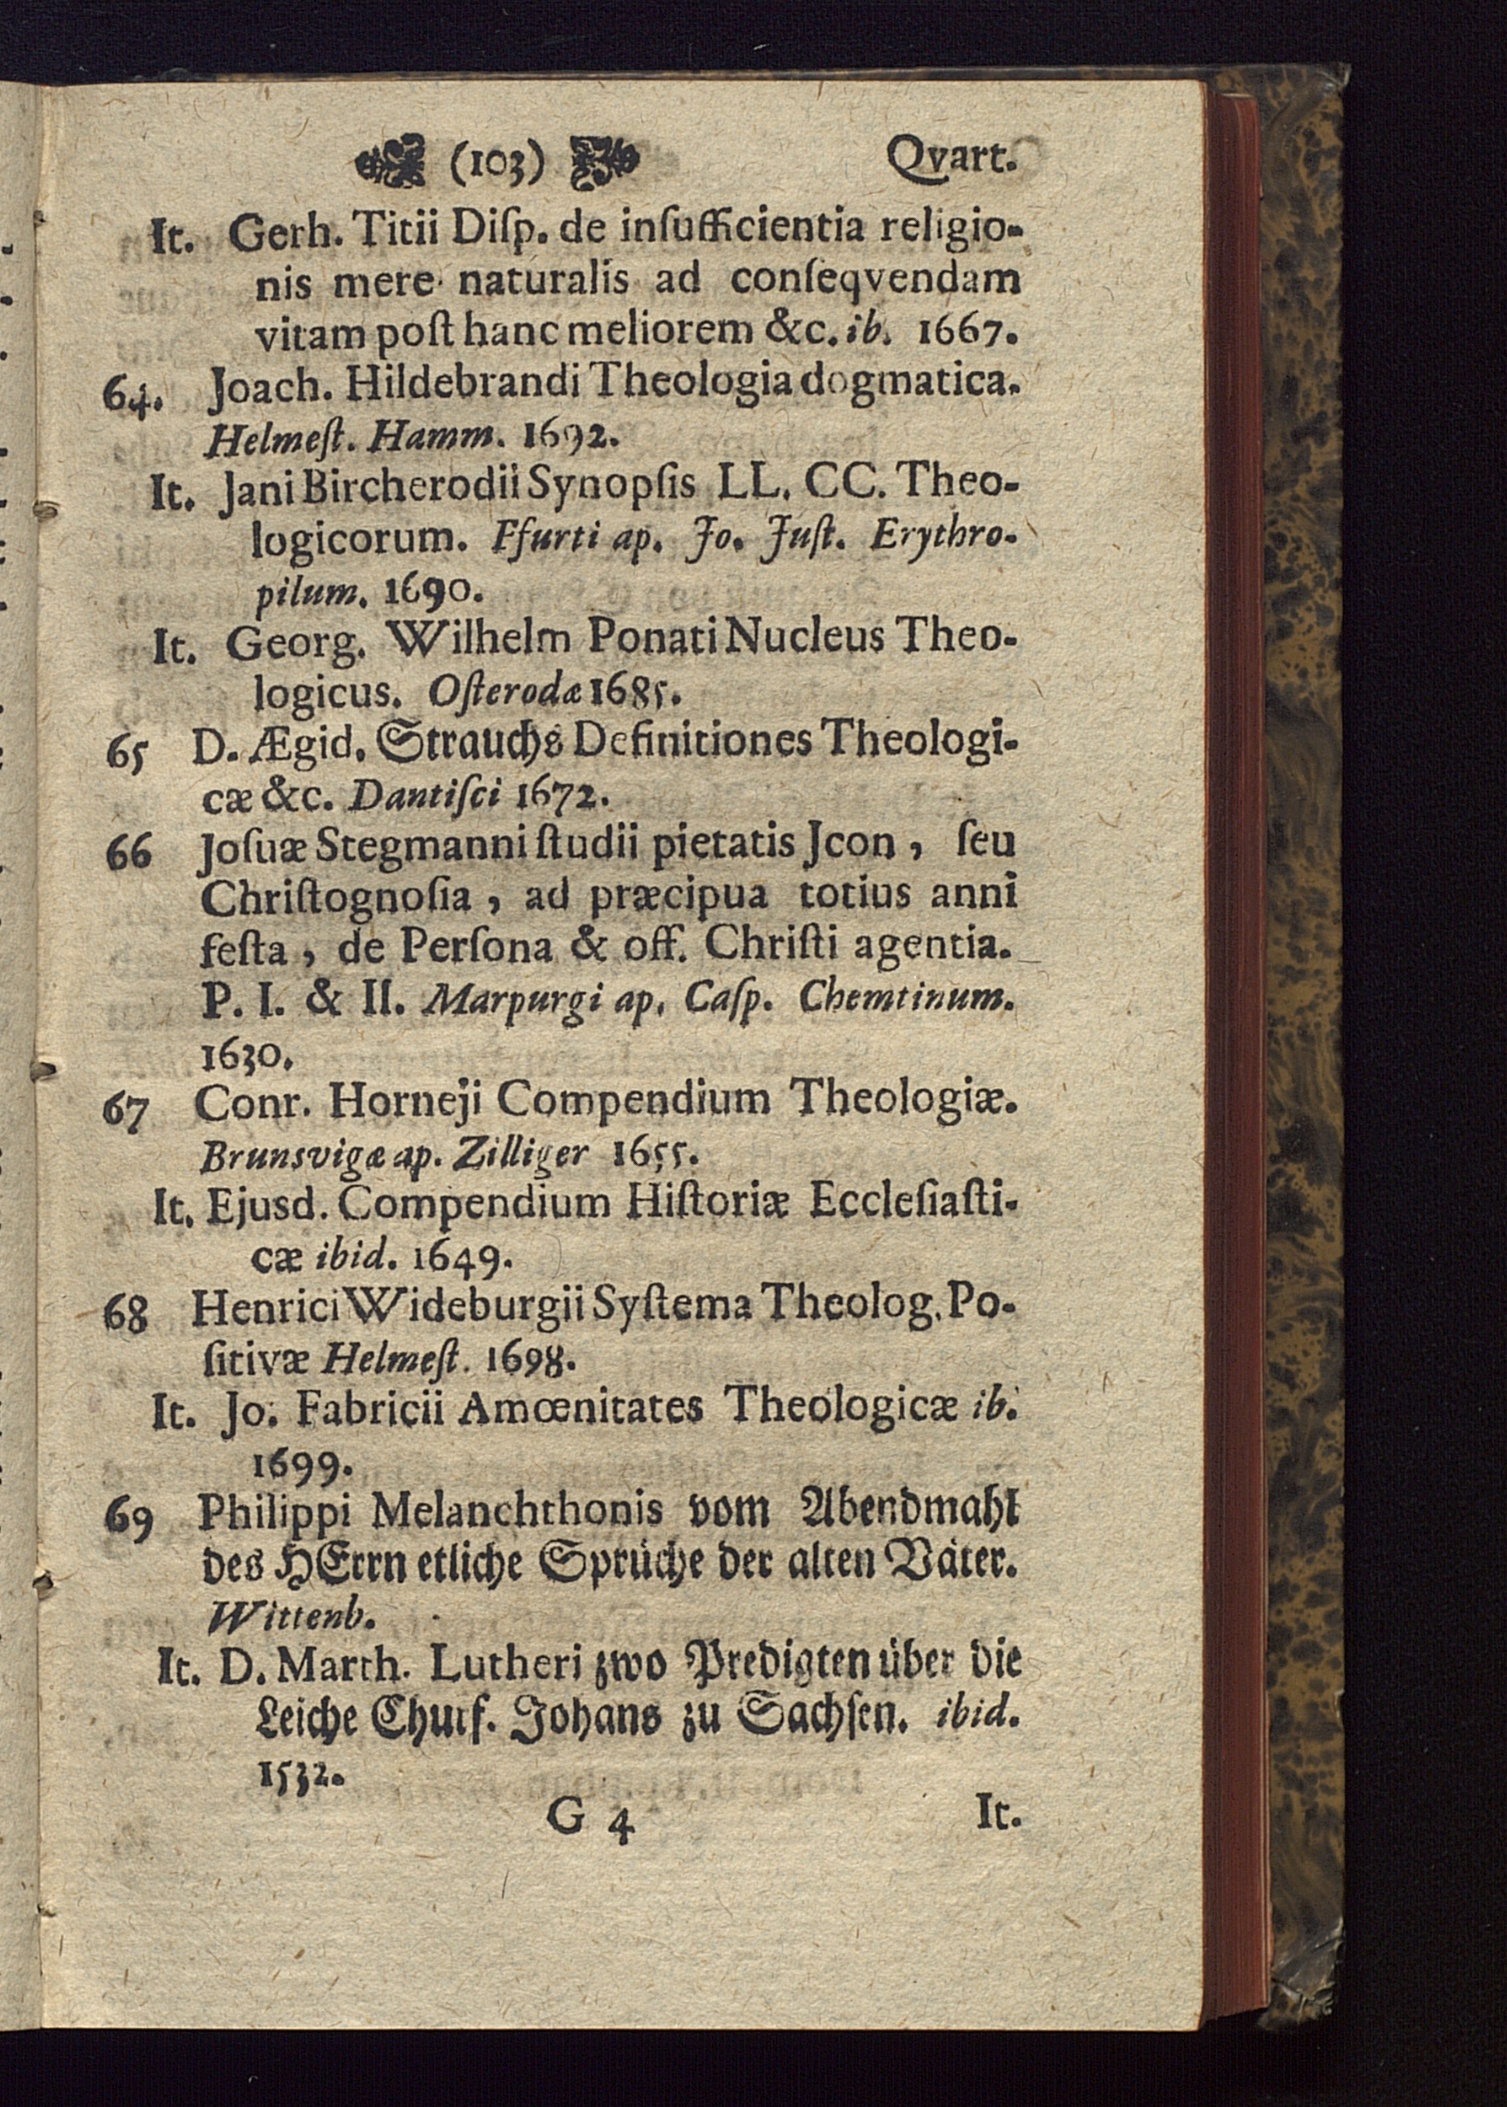 (103) Qvart.
It. Gerh. Titii Diſp. de inſufficientia religio-
nis mere naturalis ad conſeqvendam
vitam poſt hanc meliorem &c. ib. 1667.
64. Joach. Hildebrandi Theologia dogmatica.
Helmeſt. Hamm. 1692.
It. Jani Bircherodii Synopſis LL. CC. Theo-
logicorum. Ffurti ap. Jo. Juſt. Erythro-
pilum. 1690.
It. Georg. Wilhelm Ponati Nucleus Theo-
logicus. Oſterodæ 1685.
65 D. Ægid. Strauchs Definitiones Theologi-
cæ &c. Dantiſci 1672.
66 Joſuæ Stegmanni ſtudii pietatis Jcon, ſeu
Chriſtognoſia, ad præcipua totius anni
feſta, de Perſona & off. Chriſti agentia.
P. I. & II. Marpurgi ap. Caſp. Chemtinum.
1630.
67 Conr. Horneji Compendium Theologiæ.
Brunsvigæ ap. Zilliger 1655.
It. Ejusd. Compendium Hiſtoriæ Eccleſiaſti-
cæ ibid. 1649.
68 Henrici Wideburgii Syſtema Theolog. Po-
ſitivæ Helmeſt. 1698.
It. Jo. Fabricii Amœnitates Theologicæ ib.
1699.
69 Philippi Melanchthonis vom Abendmahl
des HErrn etliche Sprüche der alten Väter.
Wittenb.
It. D. Marth. Lutheri zwo Predigten über die
Leiche Churf. Johans zu Sachſen. ibid.
1532.
G 4 It.